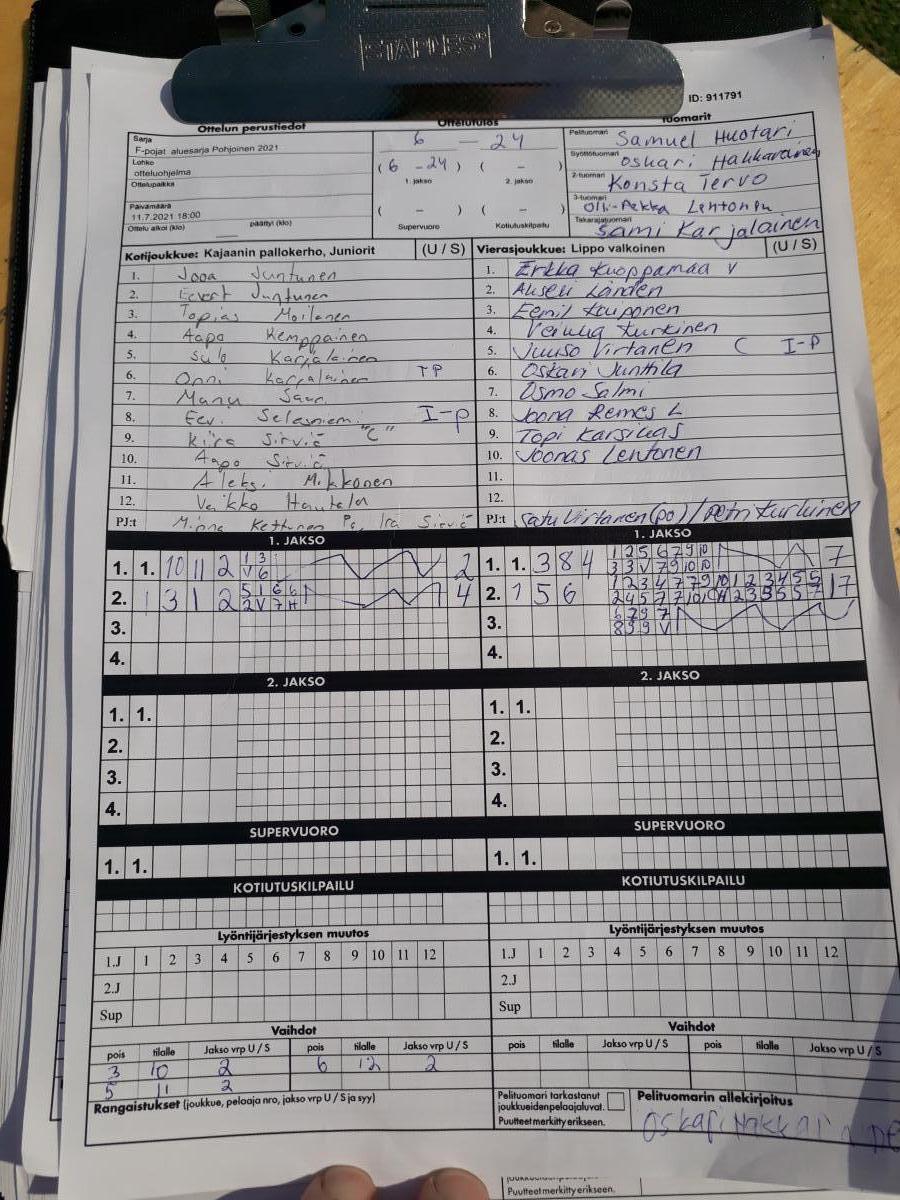 STAPLES®
ID: 911791
Ottelun perustiedot
Ottelutulos
Tuomarit
Sarja
F-pojat aluesarja Pohjoinen 2021
Lohko
otteluohjelma
Ottelupaikka
Päivämäärä
11.7.2021 18:00
Ottelu alkoi (klo) päättyi (klo)
6 — 24
( 6 - 24 ) ( - )
1. jakso 2. jakso
( - ) ( - )
Supervuoro Kotiutuskilpailu
Pelituomari Samuel Huotari
Syöttötuomari Oskari Hakkarainen
2-tuomari Konsta Tervo
3-tuomari Olli-Pekka Lehtonen
Takarajatuomari Sami Karjalainen
Kotijoukkue: Kajaanin pallokerho, Juniorit (U / S)
1. Jooa Juntunen
2. Eevert Juntunen
3. Topias Moilanen
4. Aapo Kemppainen
5. Sulo Karjalainen
6. Onni Karjalainen TP
7. Manu
8. Eevi I-p
9. Sirviö "C"
10. Aapo Sirviö
11. Aleksi Mikkonen
12. Veikko Hautala
PJ:t Minna Kettunen Po, Ira Sirviö
Vierasjoukkue: Lippo valkoinen (U / S)
1. Erkka Kuoppamaa V
2. Akseli Landen
3. Eemil Kauponen
4. Kurkinen
5. Juuso Virtanen C I-P
6. Oskari Junttila
7. Osmo Salmi
8. Joona Remes L
9. Topi Karsikas
10. Joonas Lehtonen
11.
12.
PJ:t Satu Virtanen (po) / Petri Kurkinen
1. JAKSO
1. 1. 10 11 2 1 3 2
V 6
2. 1 3 1 2 5 1 6 6 4
2 V 7 H
3.
4.
1. JAKSO
1. 1. 3 8 4 1 2 5 6 7 9 10 7
3 3 V 7 9 10 10
2. 1 5 6 1 2 3 4 7 7 9 10 1 2 3 4 5 5 17
3. 6 7 9 7
8 9 9 V
4.
2. JAKSO
1. 1.
2.
3.
4.
2. JAKSO
1. 1.
2.
3.
4.
SUPERVUORO
1. 1.
SUPERVUORO
1. 1.
KOTIUTUSKILPAILU
KOTIUTUSKILPAILU
Lyöntijärjestyksen muutos
1.J 1 2 3 4 5 6 7 8 9 10 11 12
2.J
Sup
Lyöntijärjestyksen muutos
1.J 1 2 3 4 5 6 7 8 9 10 11 12
2.J
Sup
Vaihdot
pois tilalle Jakso vrp U / S pois tilalle Jakso vrp U / S
3 10 2 6 12 2
5 11 2
Vaihdot
pois tilalle Jakso vrp U / S pois tilalle Jakso vrp U / S
Rangaistukset (joukkue, pelaaja nro, jakso vrp U / S ja syy)
Pelituomari tarkastanut
joukkueidenpelaajaluvat.
Puutteet merkitty erikseen.
Pelituomarin allekirjoitus
Oskari Hakkarainen
Puutteet merkitty erikseen.